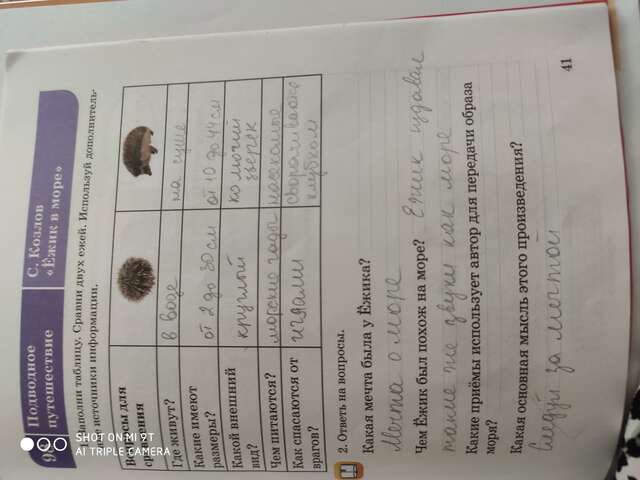 98
Подводное
путешествие
С. Козлов
«Ёжик в море»
Заполни таблицу. Сравни двух ежей. Используй дополнитель-
источники информации.
Вопросы для
сравнения
Где живут?
в воде
на суше
Какие имеют
размеры?
от 2 до 30 см
от 10 до 44 см
Какой внешний
вид?
круглый
колючий
зверёк
Чем питаются?
морские
насекомые
Как спасаются от
врагов?
иглами
сворачиваются
клубком
2. Ответь на вопросы.
Какая мечта была у Ёжика?
Мечта о море
Чем Ёжик был похож на море? Ёжик издавал
такие же звуки как море
Какие приёмы использует автор для передачи образа
моря?
Какая основная мысль этого произведения?
Следуй за мечтой
41
SHOT ON MI 9T
AI TRIPLE CAMERA